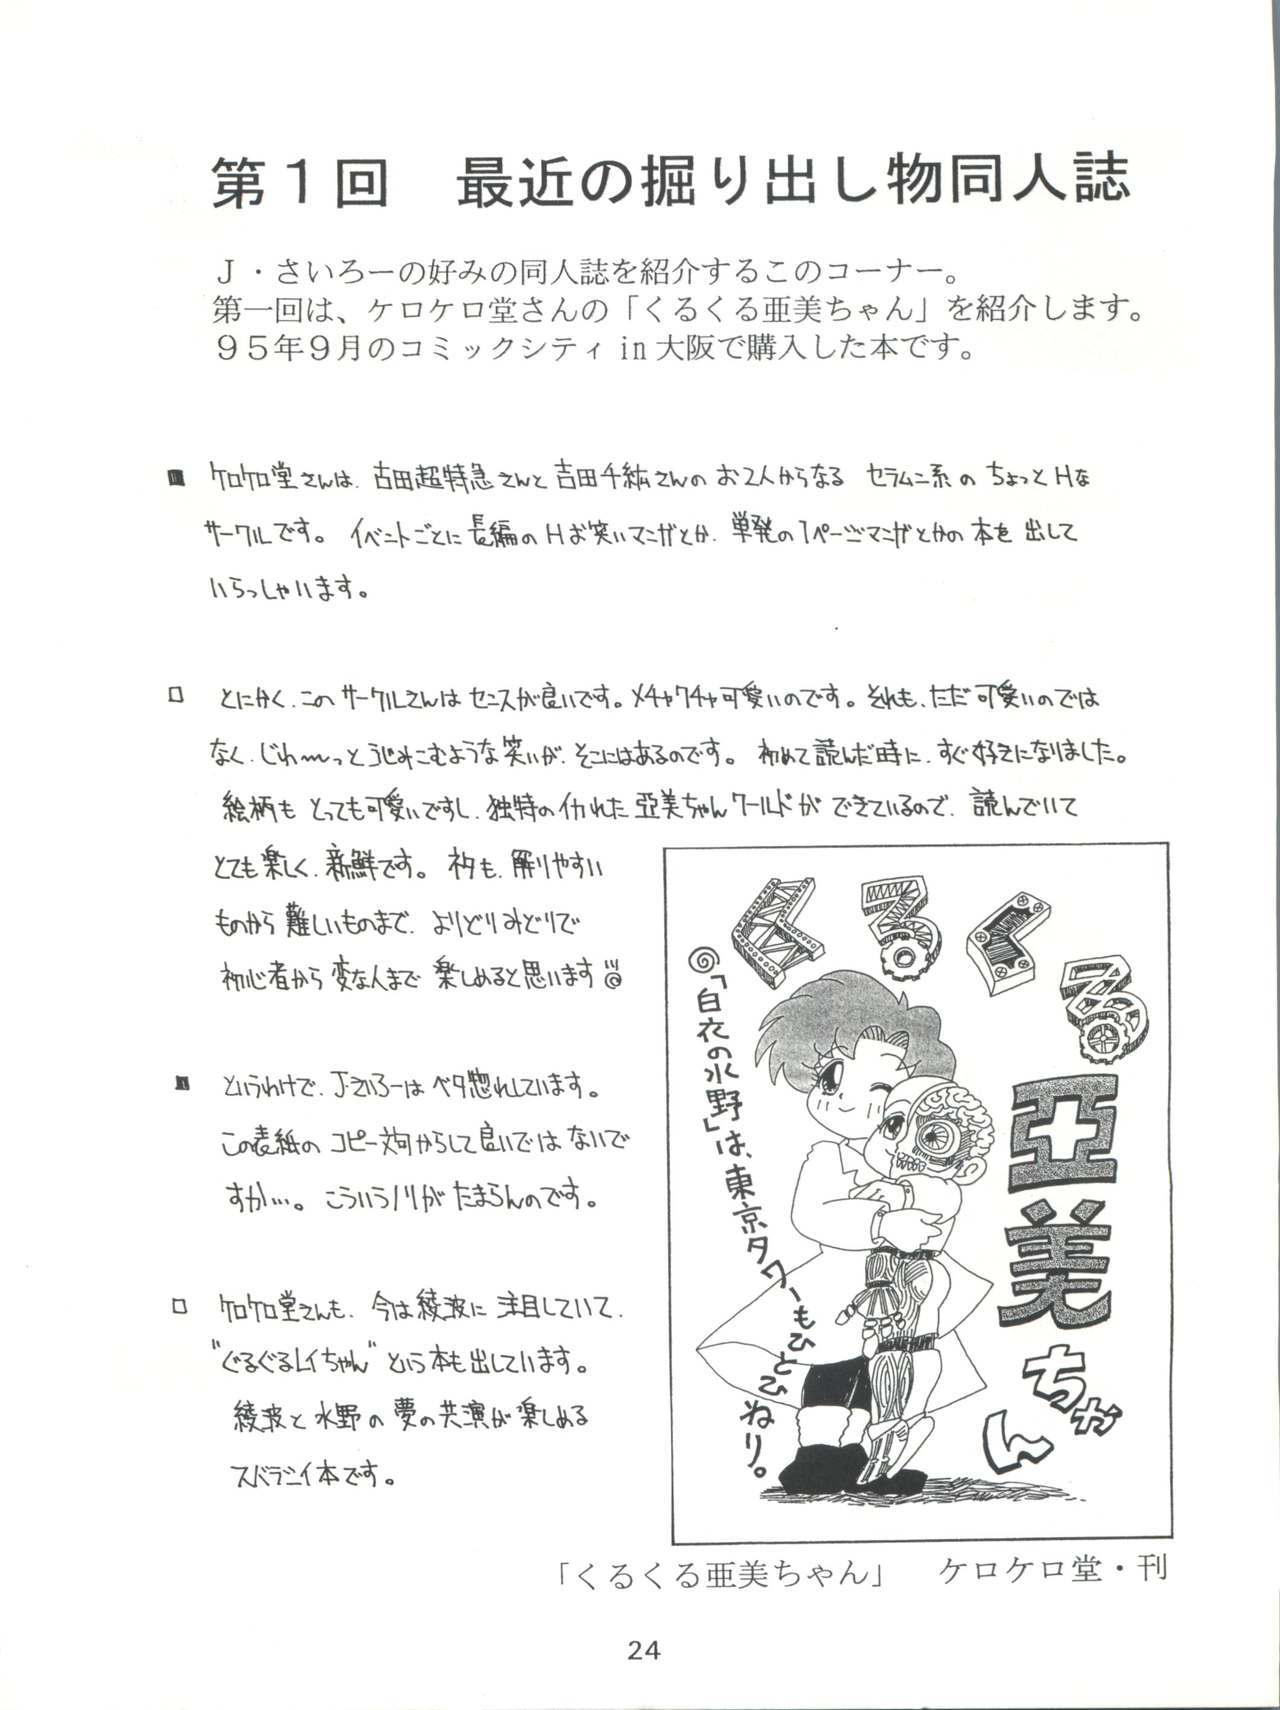 第１回　最近の掘り出し物同人誌
Ｊ・さいろーの好みの同人誌を紹介するこのコーナー。
第一回は、ケロケロ堂さんの「くるくる亜美ちゃん」を紹介します。
９５年９月のコミックシティ in 大阪で購入した本です。
■ ケロケロ堂さんは、古田超特急さんと吉田千紘さんのお2人からなる セラムン系の ちょっとHな
サークルです。 イベントごとに長編のHお笑いマンガとか、単発の1ページマンガとかの本を出して
いらっしゃいます。
□ とにかく、このサークルさんはセンスが良いです。メチャクチャ可愛いのです。それも、ただ可愛いのでは
なく、じわ〜っとうじみこむような笑いが、そこにはあるのです。 初めて読んだ時に、すぐ好きになりました。
絵柄も とっても可愛いですし、独特のイカれた 亜美ちゃんワールドが できているので、読んでいて
とても楽しく、新鮮です。 ネタも、解りやすい
ものから 難しいものまで、よりどりみどりで
初心者から 変な人まで 楽しめると思います
■ というわけで、Jさいろーは ベタ惚れしています。
この表紙の コピー文句からして良いではないで
すか…。こういうノリが たまらんのです。
□ ケロケロ堂さんも、今は綾波に 注目していて、
“ぐるぐるレイちゃん” という本も出しています。
綾波と 水野の 夢の共演が楽しめる
スバラシイ本です。
くるくる
亞美ちゃん
「白衣の水野」は、東京タワーもひとひねり。
「くるくる亜美ちゃん」　ケロケロ堂・刊
24